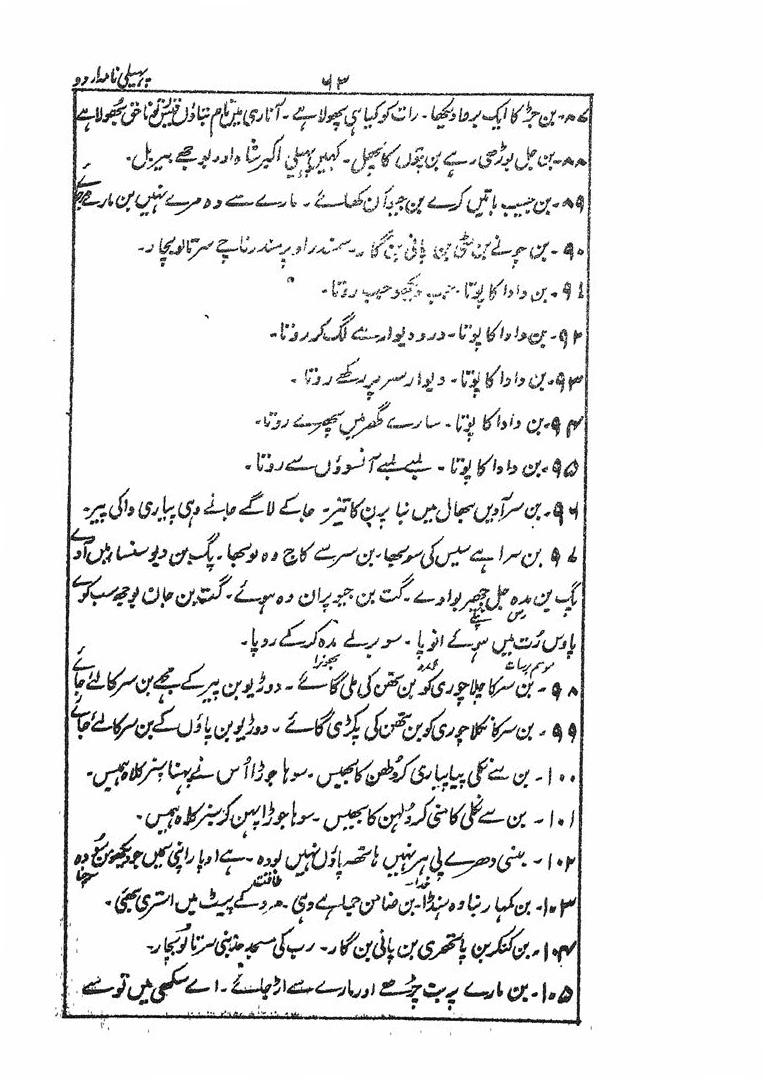 پہیلی نامہ اردو
۶۳
۸۷۔ بن جڑ کا ایک برھا دیکھا۔ رات کو کیا ہی پھولا ہے۔ آناری میں نام بتاؤں
۸۸۔ بن جل بوڑھی رہے بن پتوں کا پھل۔ کہیں پہیلی اکبر شاہ اور بوجھے بیربل۔
۸۹۔ بن جیب باتیں کرے بن کھائے۔ مارے سے وہ مرے نہیں بن مارے
۹۰۔ بن چونے بن مٹی بن پانی بن گار۔ سمندر اوپر مندر ناچے سرتا لو بچار۔
۹۱۔ بن دادا کا پوتا۔ جب دیکھو جب روتا۔
۹۲۔ بن دادا کا پوتا۔ در و دیوار سے لگ کر روتا۔
۹۳۔ بن دادا کا پوتا۔ دیوار سر پر رکھے روتا۔
۹۴۔ بن دادا کا پوتا۔ سارے گھر میں پھرے روتا۔
۹۵۔ بن دادا کا پوتا۔ لمبے لمبے آنسوؤں سے روتا۔
۹۶۔ بن سر آدیں بھال میں بنا پرن کا تیر۔ جا کے لاگے جانے وہی پیاری وا کی پیر۔
۹۷۔ بن سرا ہے سیس کی سوبھا۔ بن سر سے کاج وہ لوبھا۔ پگ بن دیو سنسا میں آوے
پگ بن مدہ جل بوادے۔ گت بن جیو پران وہ ہوئے۔ گت بن جان بوجھ سب کوئے
پاوس رُت میں ہوئے انوپا۔ سو برلے مدہ کر کے روپا۔
موسم برسات عمدہ بھونرا
۹۸۔ بن سر کا چلا چوری کو بن تھن کی ملی گائے۔ دوڑیو بن پیر کے مجھے بن سر کا لئے جائے
۹۹۔ بن سر کا نکلا چوری کو بن تھن کی پکڑی گائے۔ دوڑیو بن پاؤں کے بن سر کا لئے جائے
۱۰۰۔ بن سے نکلی پیا پیاری کر دُلھن کا بھیس۔ سوہا جوڑا اُس نے پہنا سبز کلاہ ہمیس۔
۱۰۱۔ بن سے نکلی کامنی کر دُلہن کا بھیس۔ سوہا جوڑا پہن کر سبز کلاہ ہمیس۔
۱۰۲۔ بنی دھرے پی ہر نہیں ہاتھ پاؤں نہیں لودہ۔ ہے ادہار اپنی
۱۰۳۔ بن کمہار بنا وہ ہنڈا۔ بن ضامن جما ہے وہی۔ مرد کے پیٹ میں استری بھئی۔
۱۰۴۔ بن کنکر بن پاتھری بن پانی بن گار۔ رب کی مسجد بنی سرتا لو بچار۔
۱۰۵۔ بن مارے پربت چڑھے اور مارے سے اڑ جائے۔ اے سکھی میں تو سے